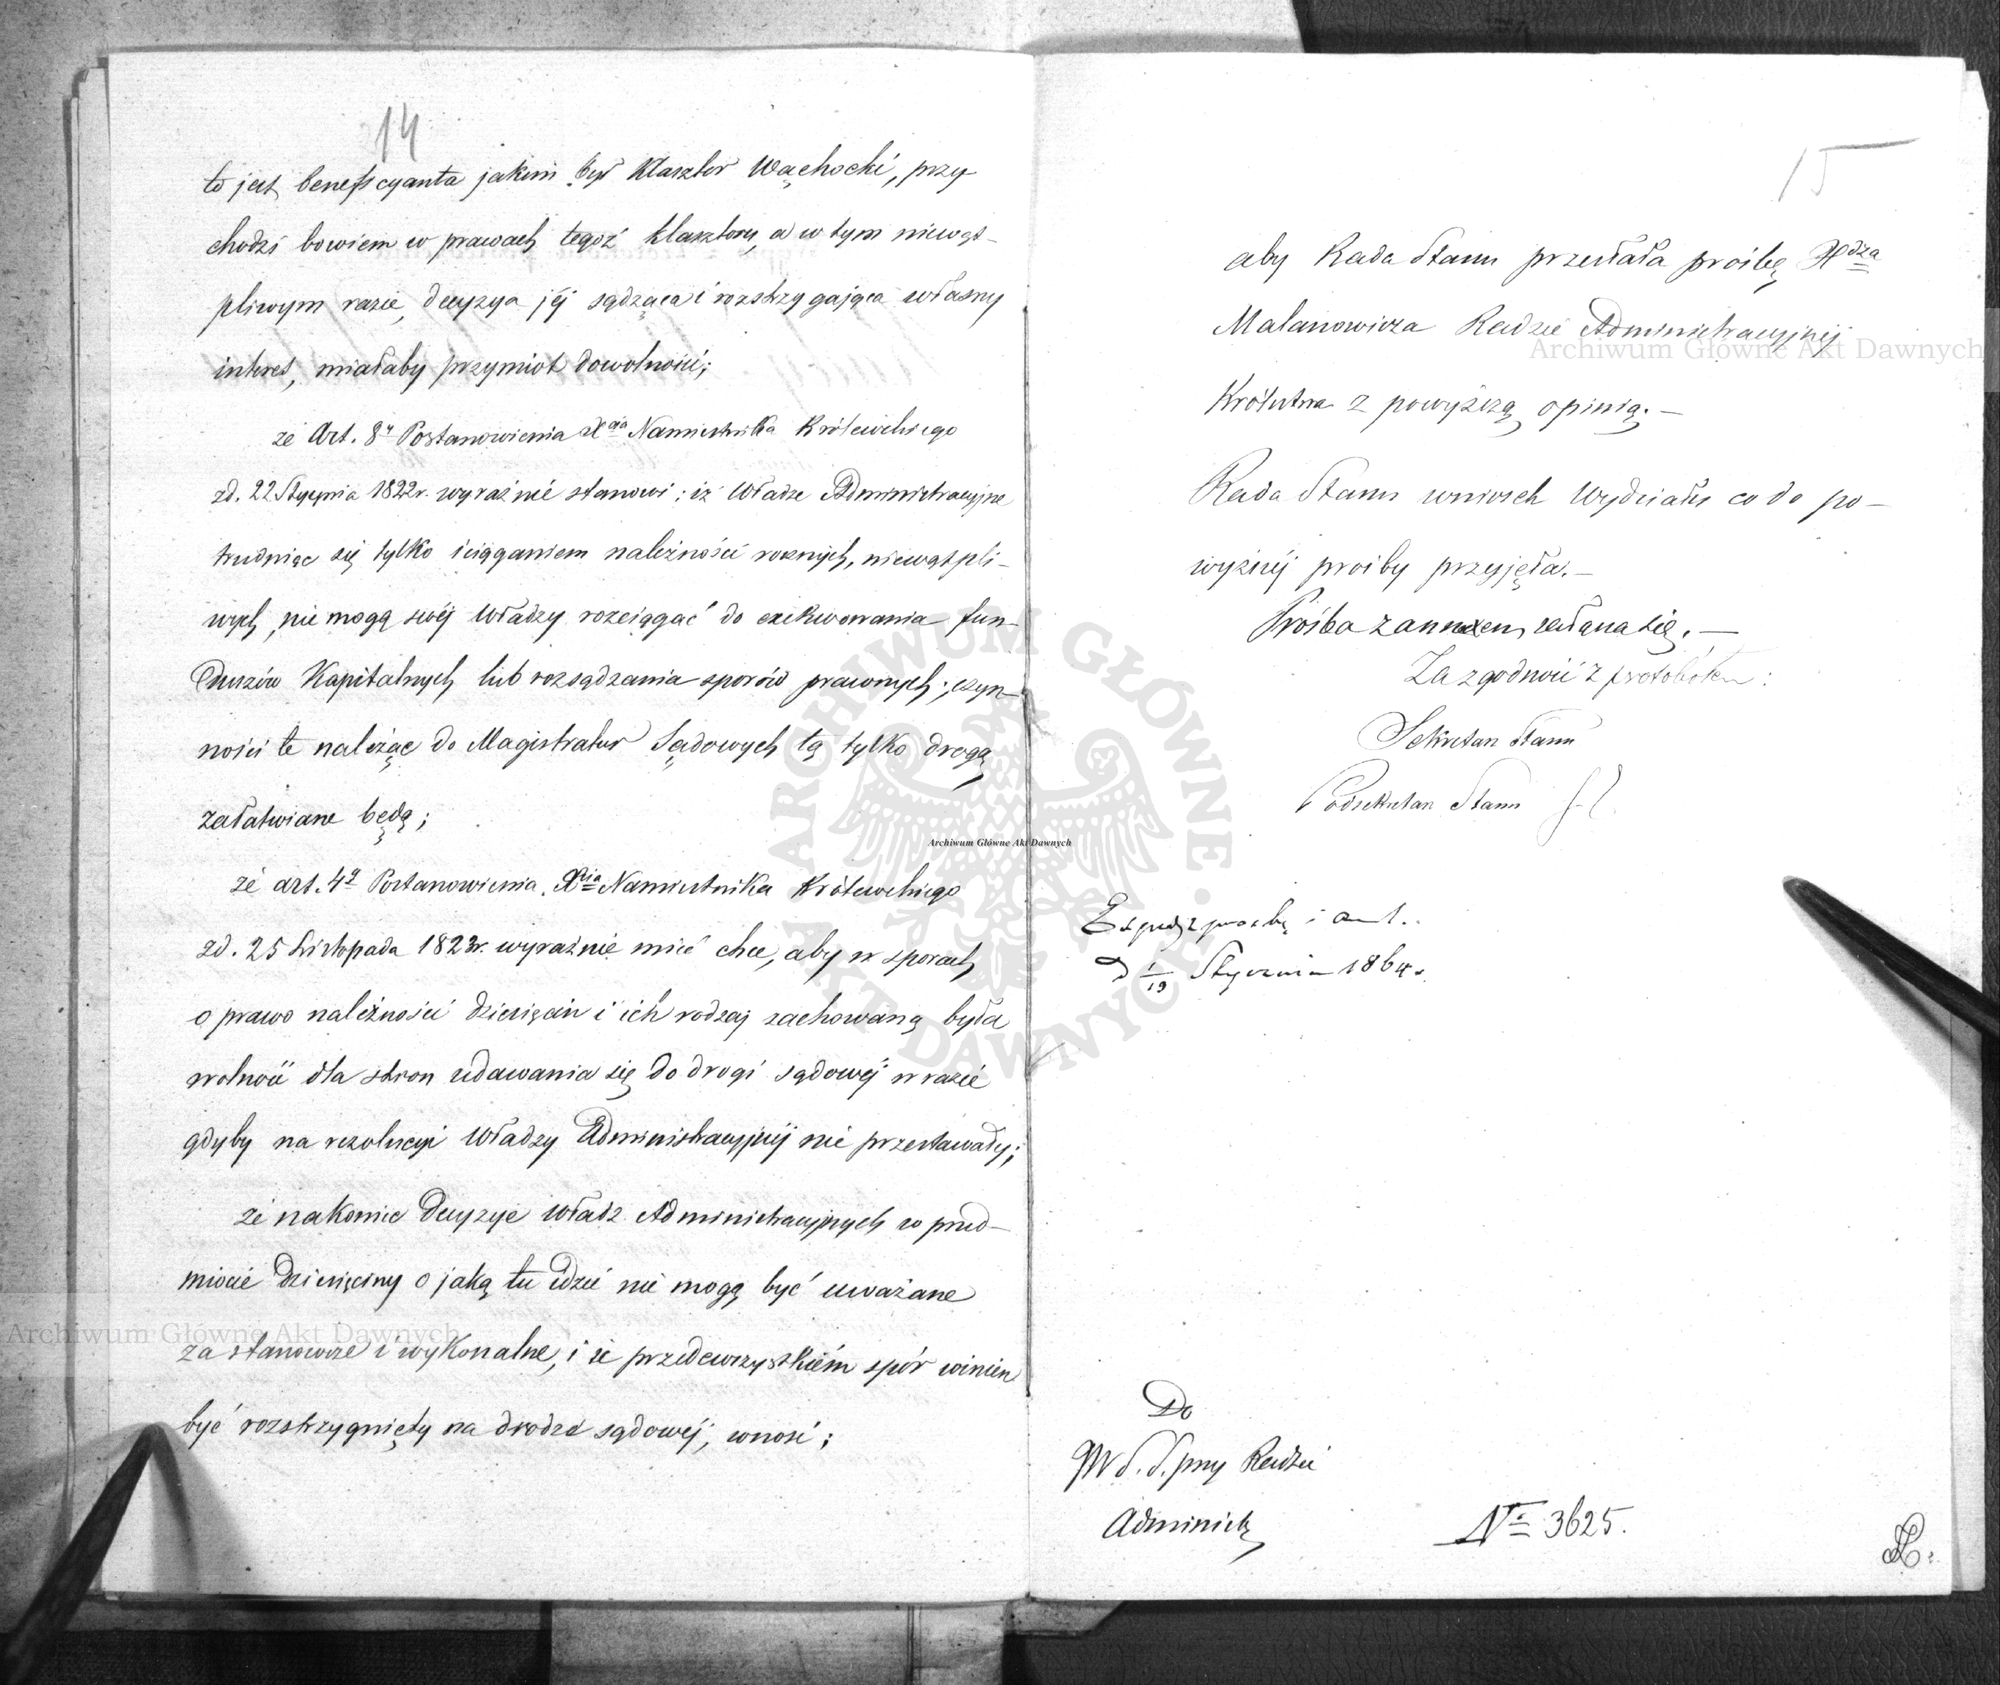 14
to jest beneficyanta jakim był Klasztor Wąchocki, przy
chodzi bowiem w prawach tegoż klasztoru, a w tym niewąt-
pliwym razie, decyzya jéj sądząca i rozstrzygająca własny
interes, miałaby przymiot dowolności;
że Art. 8y Postanowienia Xcia Namiestnika Królewskiego
zd. 22 Stycznia 1822r. wyraźnie stanowi: iż Władze Administracyjne
trudniąc się tylko ściąganiem należności rocznych, niewątpli-
wych, nie mogą swéj Władzy rozciągać do exekwowania fun-
duszów Kapitalnych lub rozsądzania sporów prawnych; czyn-
ności te należąc do Magistratur Sądowych tą tylko drogą
załatwiane będą;
że art. 4y Postanowienia Xcia Namiestnika Królewskiego
zd. 25 Listopada 1823r. wyraźnie mieć chce, aby w sporach
o prawo należności dziesięcin i ich rodzaj zachowaną była
wolność dla stron udawania się do drogi sądowéj w razie
gdyby na rezolucyi Władzy Administracyjnéj nie przestawały;
że nakoniec decyzye władz Administracyjnych w przed-
miocie dziesięciny o jaką tu idzie nie mogą być uważane
za stanowcze i wykonalne, i że przedewszystkiém spór winien
być rozstrzygnięty na drodze sądowéj, wnosi;
15
aby Rada Stanu przesłała prośbę Xdza
Malanowicza Radzie Administracyjnéj
Królestwa z powyższą opinią.—
Rada Stanu wniosek Wydziału co do po-
wyższéj prośby przyjęła.—
Prośba z annexem zwraca się.—
Za zgodność z protokółem:
Sekretarz Stanu
Podsekretarz Stanu
i
d 1/13 Stycznia 1864.
Do
przy Radzie
Administr.
No 3625.
Archiwum Główne Akt Dawnych
Archiwum Główne Akt Dawnych
Archiwum Główne Akt Dawnych
ARCHIWUM GŁÓWNE AKT DAWNYCH